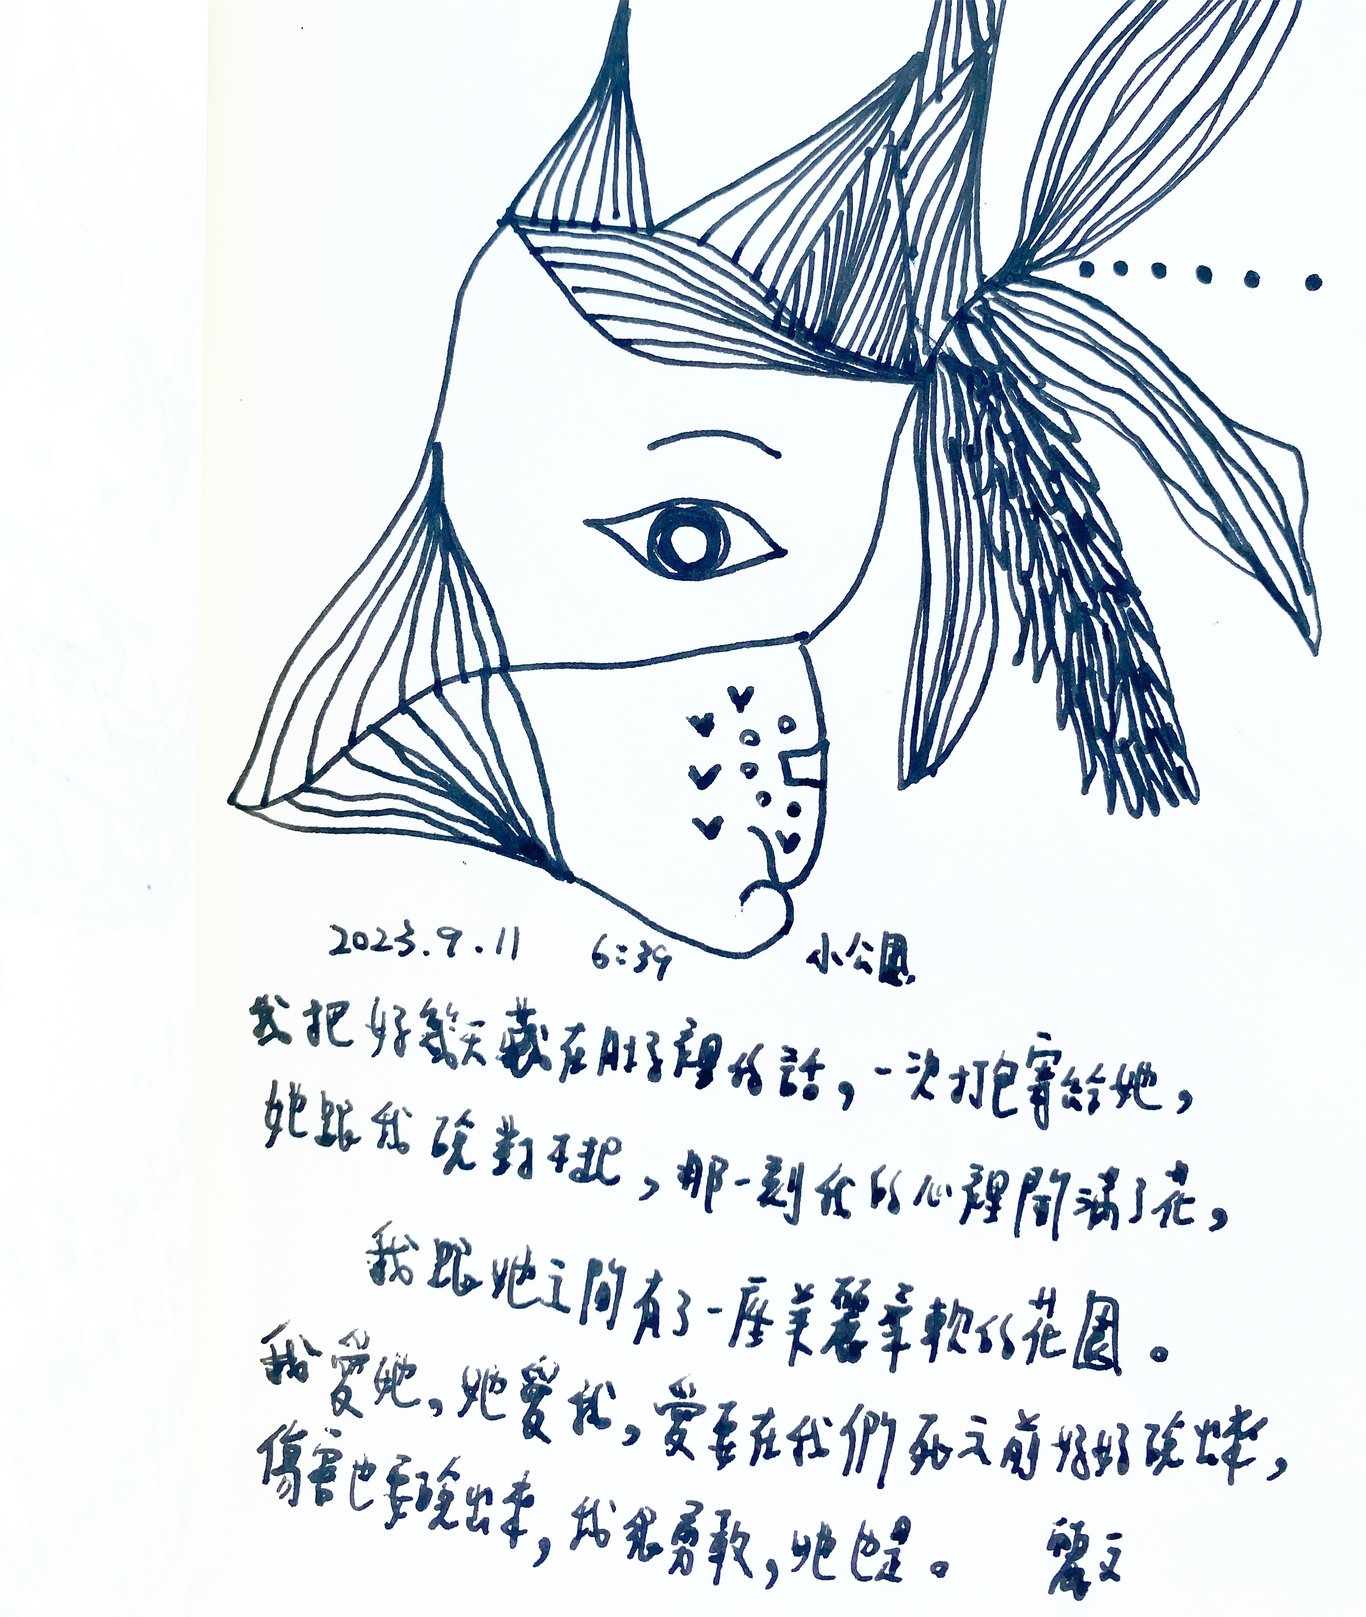 2023.9.11 6:39 小公園
我把好幾天藏在肚子裡的話，一次打包寄給她，
她跟我說對不起，那一刻我的心裡開滿了花，
我跟她之間有了一座美麗柔軟的花園。
我愛她，她愛我，愛要在我們死之前好好說出來，
傷害也要說出來，我很勇敢，她也是。 麗文